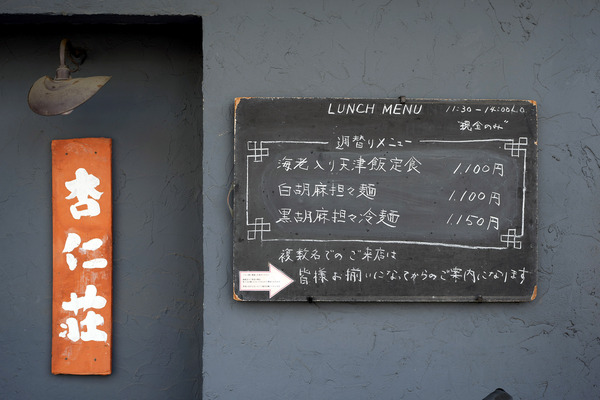 杏仁荘
LUNCH MENU 11:30 - 14:00L.O
"現金のみ"
週替りメニュー
海老入り天津飯定食 1,100円
白胡麻担々麺 1,100円
黒胡麻担々冷麺 1,150円
複数名でのご来店は
皆様お揃いになってからのご案内になります